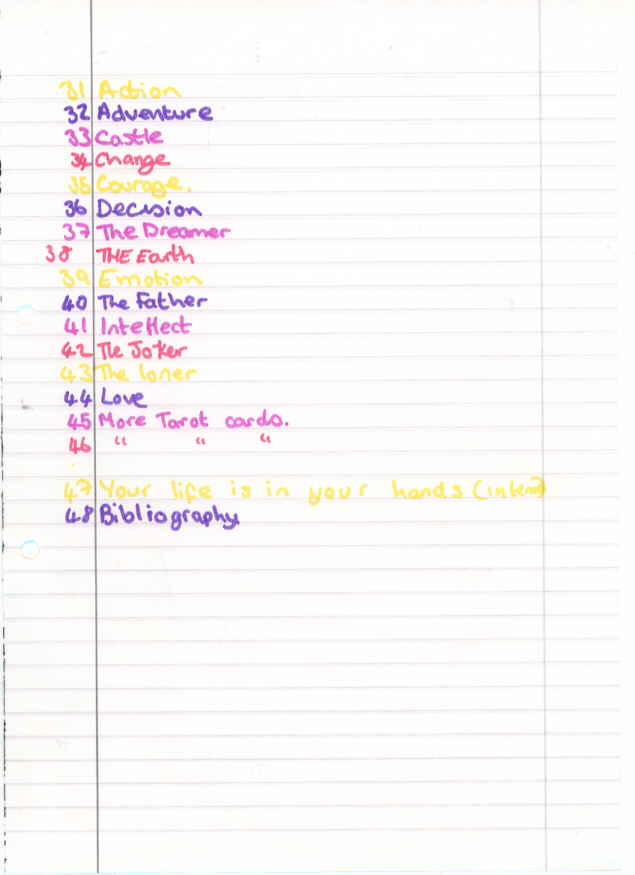 31 Action
32 Adventure
33 Castle
34 Change
35 Courage.
36 Decision
37 The Dreamer
38 THE Earth
39 Emotion
40 The Father
41 Intellect
42 The Joker
43 The loner
44 Love
45 More Tarot cards.
46 " " "
47 Your life is in your hands (
48 Bibliography